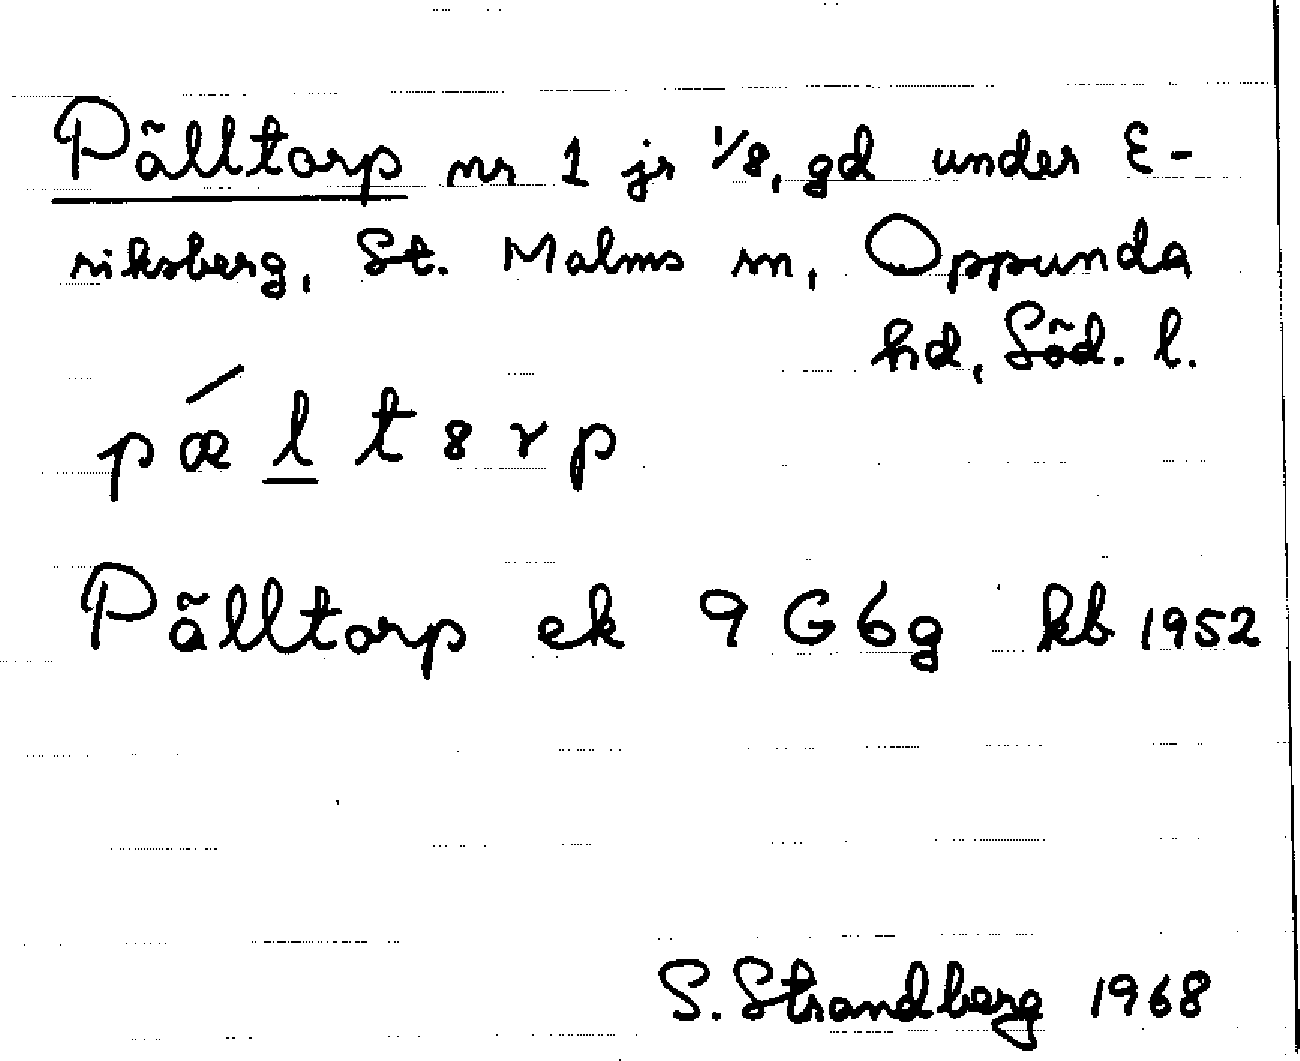 Pälltorp nr 1 jr 1/8, gd under E-
riksberg, St. Malms sn, Oppunda
hd, Söd. l.
pǽl̲t8rp
Pälltorp ek 9G6g kb 1952
S. Strandberg 1968